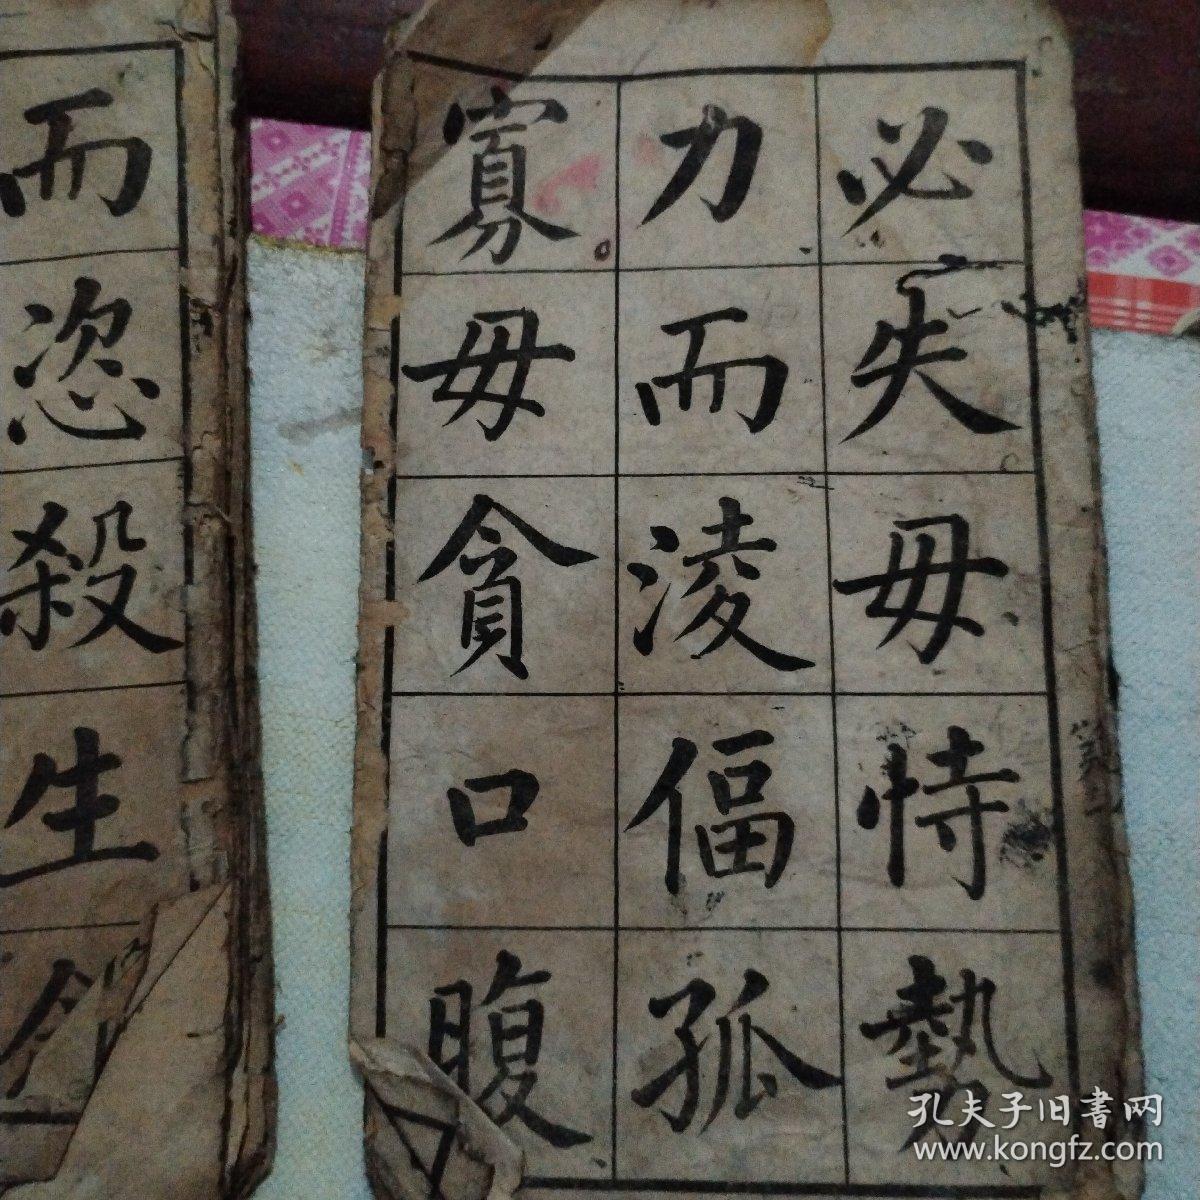 必失毋恃勢
力而淩偪孤
寡毋貪口腹
而恣殺生
孔夫子旧書网
www.kongfz.com